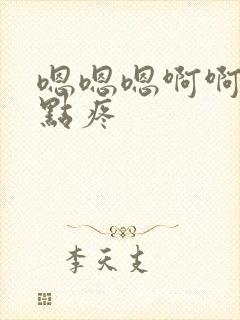 嗯嗯嗯啊啊
點疼
李天支